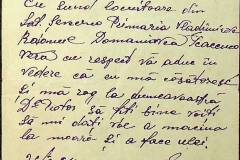 Cu Send locuitoare din
Sat Senseru Primaria Vladimirea
Raionul Domanovca
vera cu respect va aduc in
vedere ca eu mă căsătoresc
Și mă rog la dumeavoastră
De totos să fiți bine voiți
Să mi dați voe a macina
la moară și a face ulei